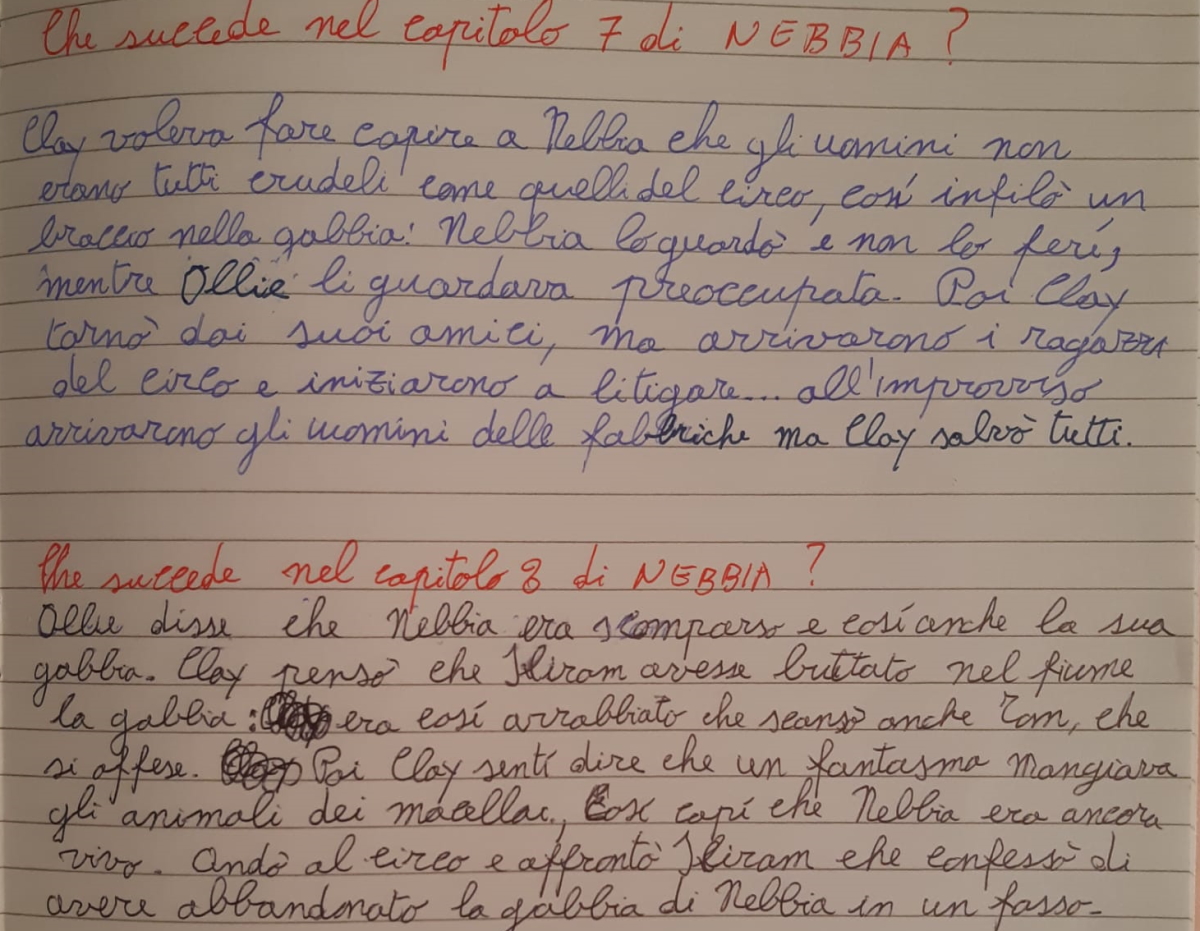 Che succede nel capitolo 7 di NEBBIA ?
Clay voleva fare capire a Nebbia che gli uomini non
erano tutti crudeli come quelli del circo, così infilò un
braccio nella gabbia: Nebbia lo guardò e non lo ferì,
mentre Ollie li guardava preoccupata. Poi Clay
tornò dai suoi amici, ma arrivarono i ragazzi
del circo e iniziarono a litigare... all'improvviso
arrivarono gli uomini delle fabbriche ma Clay salvò tutti.
Che succede nel capitolo 8 di NEBBIA ?
Ollie disse che Nebbia era scomparso e così anche la sua
gabbia. Clay pensò che Hiram avesse buttato nel fiume
la gabbia : era così arrabbiato che scansò anche Tom, che
si offese. Poi Clay sentì dire che un fantasma mangiava
gli animali dei macellai, Così capí che Nebbia era ancora
vivo. Andò al circo e affrontò Hiram che confessò di
avere abbandonato la gabbia di Nebbia in un fosso-